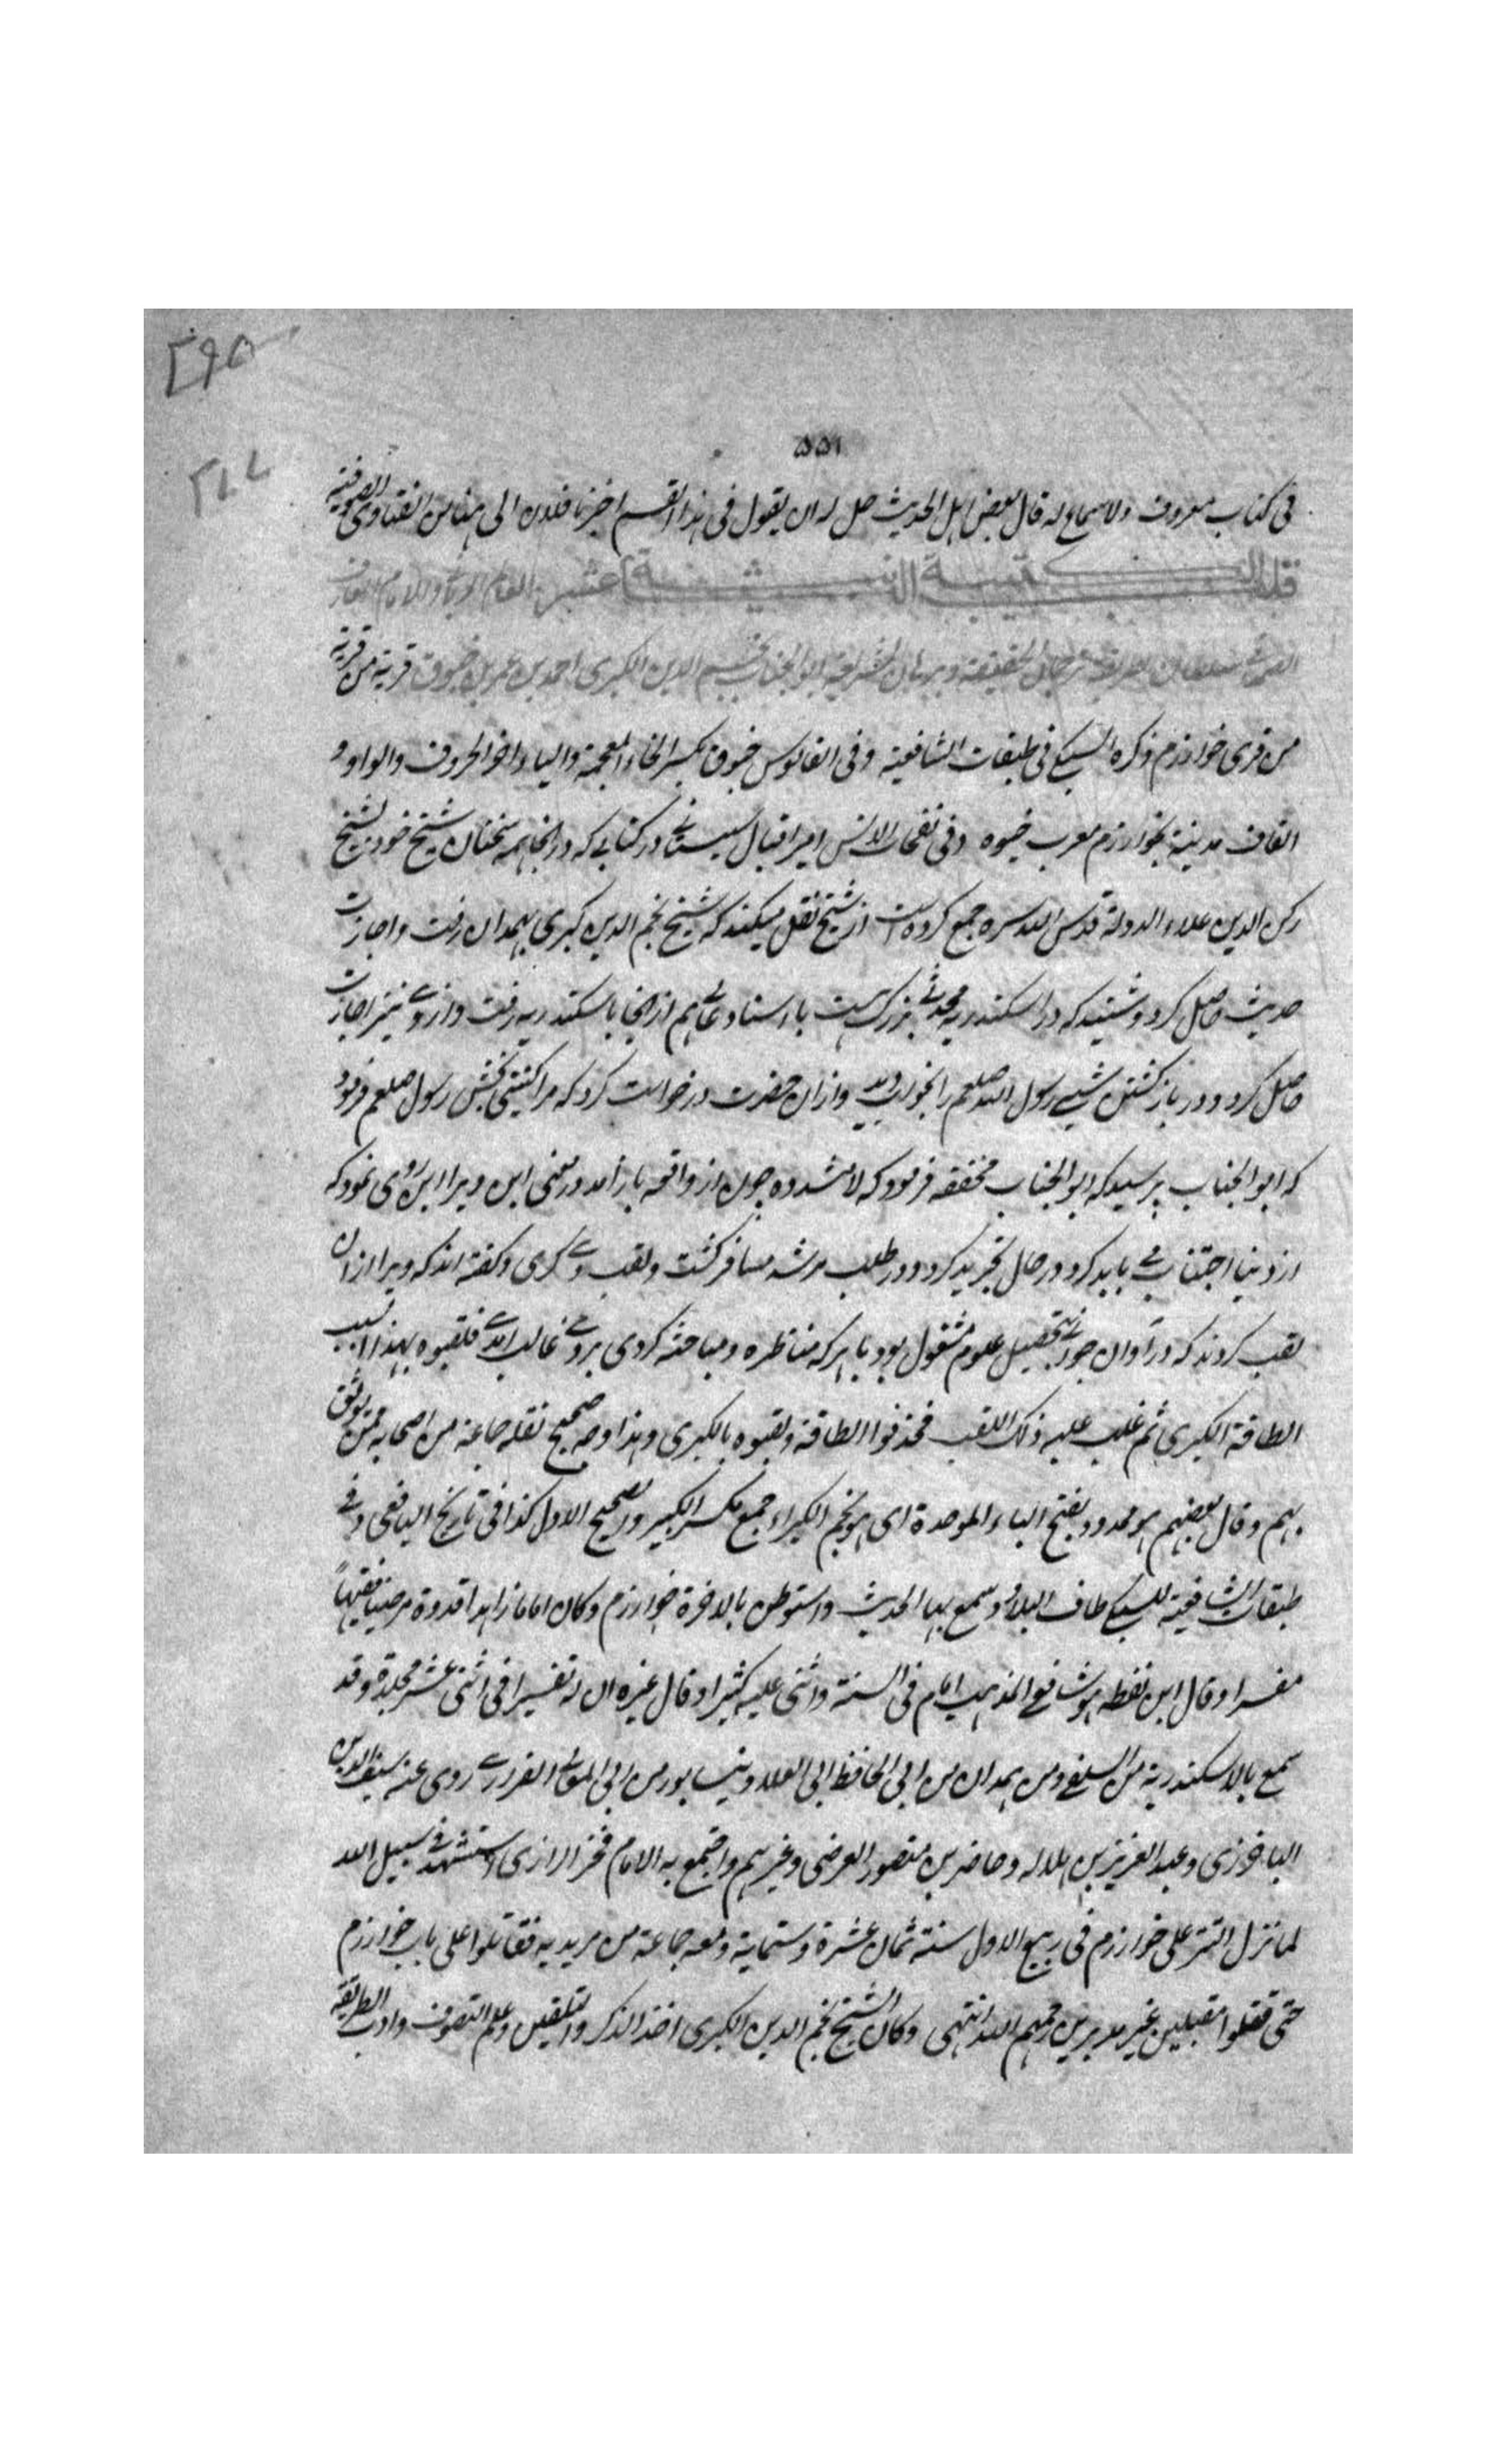 ۲۹۵
۵۵۱
فی کتاب معروف ولا سماع له قال بعض اهل الحدیث حل له ان یقول فی هذا القسم اخبرنا فلان الی هنا من الفتاوی الصوفیة
الکتیبة الثانیة عشر العالم الربانی والامام العارف
سلطان الطریقة ترجمان الحقیقة وبرهان الشریعة ابو الجناب نجم الدین الکبری احمد بن عمر بن خیوق قریة من قریة
من قری خوارزم ذکره السبکی فی طبقات الشافعیة وفی القاموس خیوق بکسر الخاء المعجمة والیاء اخر الحروف والواو و
القاف مدینة بخوارزم معرب خیوه وفی نفحات الانس امیر اقبال سیستانی در کتابی که در انجا همه سخنان شیخ خود شیخ
رکن الدین علاء الدولة قدس الله سره جمع کرده است از شیخ نقل میکند که شیخ نجم الدین کبری بهمدان رفت و اجازت
حدیث حاصل کرد و شنید که در اسکندریه محدثی بزرکست با اسناد عالی هم از انجا باسکندریه رفت و از وی نیز اجازت
حاصل کرد و در باز کشتن شبی رسول الله صلعم را بخواب دید و ازان حضرت درخواست کرد که مرا کنیتی بخش رسول صلعم فرمود
که ابو الجناب پرسید که ابو الجناب مخففه فرمود که لا مشدده چون از واقعه باز آمد در معنی این ویرا این روی نمود که
از دنیا اجتناب می باید کرد در حال تجرید کرد و در طلب مرشد مسافر کشت ولقب وی کبری و کفته اند که ویرا ازان
لقب کردند که در اوان جوانی بتحصیل علوم مشغول بود با هر که مناظره و مباحثه کردی بروی غالب امدی فلقبوه بهذا السبب
الطامة الکبری ثم غلب علیه ذلک اللقب فحذفوا الطامة ولقبوه بالکبری وهذا وجه صحیح نقله جماعة من اصحابه ممن یوثق
بهم وقال بعضهم هو ممدود بفتح الباء الموحدة ای هو نجم الکبراء جمع مکسر الکبیر والصحیح الاول کذا فی تاریخ الیافعی وفی
طبقات الشافعیة للسبکی طاف البلاد وسمع بها الحدیث واستوطن بالاخرة خوارزم وکان اماما زاهدا قدوة مرضیا فقیها
مفسرا وقال ابن نقطه هو شافعی المذهب امام فی السنة واثنی علیه کثیرا وقال غیره ان له تفسیرا فی اثنی عشر مجلدة وقد
سمع بالاسکندریة من السلفی ومن بهمدان من ابی الحافظ ابی العلاء ونیسابور من ابی المعالی الفراوی روی عنه سیف الدین
الباخرزی وعبد العزیز بن هلاله وحاضر بن منصور العرضی وغیرهم واجتمع به الامام فخر الرازی استشهد فی سبیل الله
لما نزل التتر علی خوارزم فی ربیع الاول سنة ثمان عشرة وستمایة ومعه جماعة من مریدیه فقاتلوا علی باب خوارزم
حتی قتلوا مقبلین غیر مدبرین رحمهم الله انتهی وکان الشیخ نجم الدین الکبری اخذ الذکر والتلقین وعلم التصوف واداب الطریقة